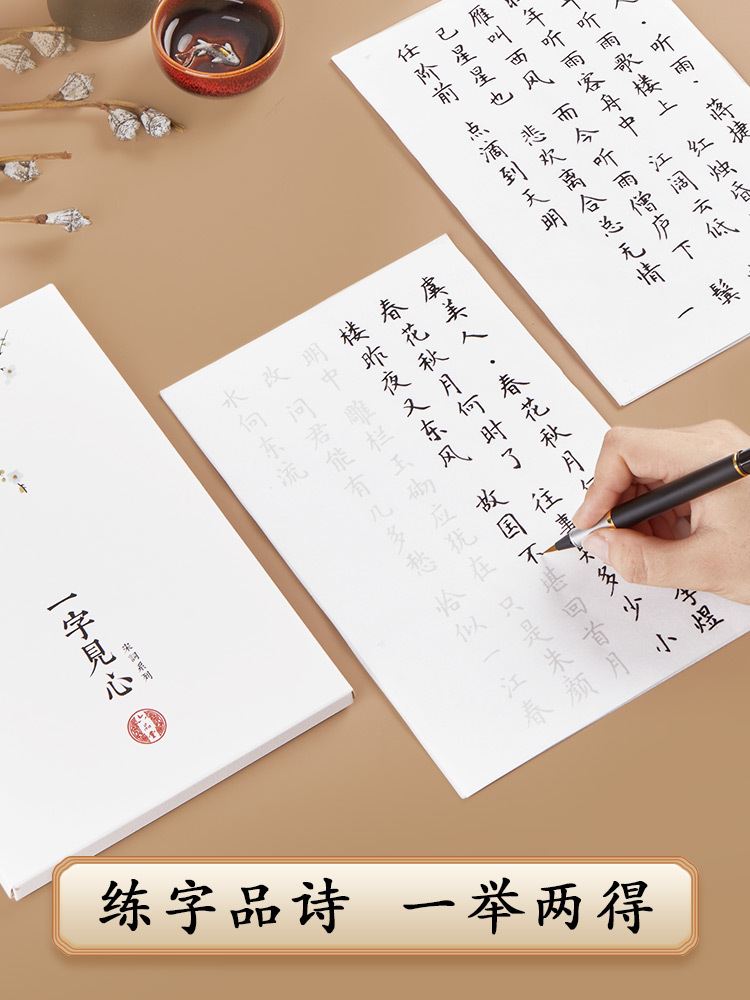 人·听雨 蒋捷
年听雨歌楼上 红烛昏
年听雨客舟中 江阔云低
雁叫西风 而今听雨僧庐下 鬓
已星星也 悲欢离合总无情 一
任阶前 点滴到天明
虞美人·春花秋月何 李煜
春花秋月何时了 往事知多少 小
楼昨夜又东风 故国不堪回首月
明中 雕栏玉砌应犹在 只是朱颜
改 问君能有几多愁 恰似一江春
水向东流
一字見心
宋詞系列
六品堂
练字品诗 一举两得